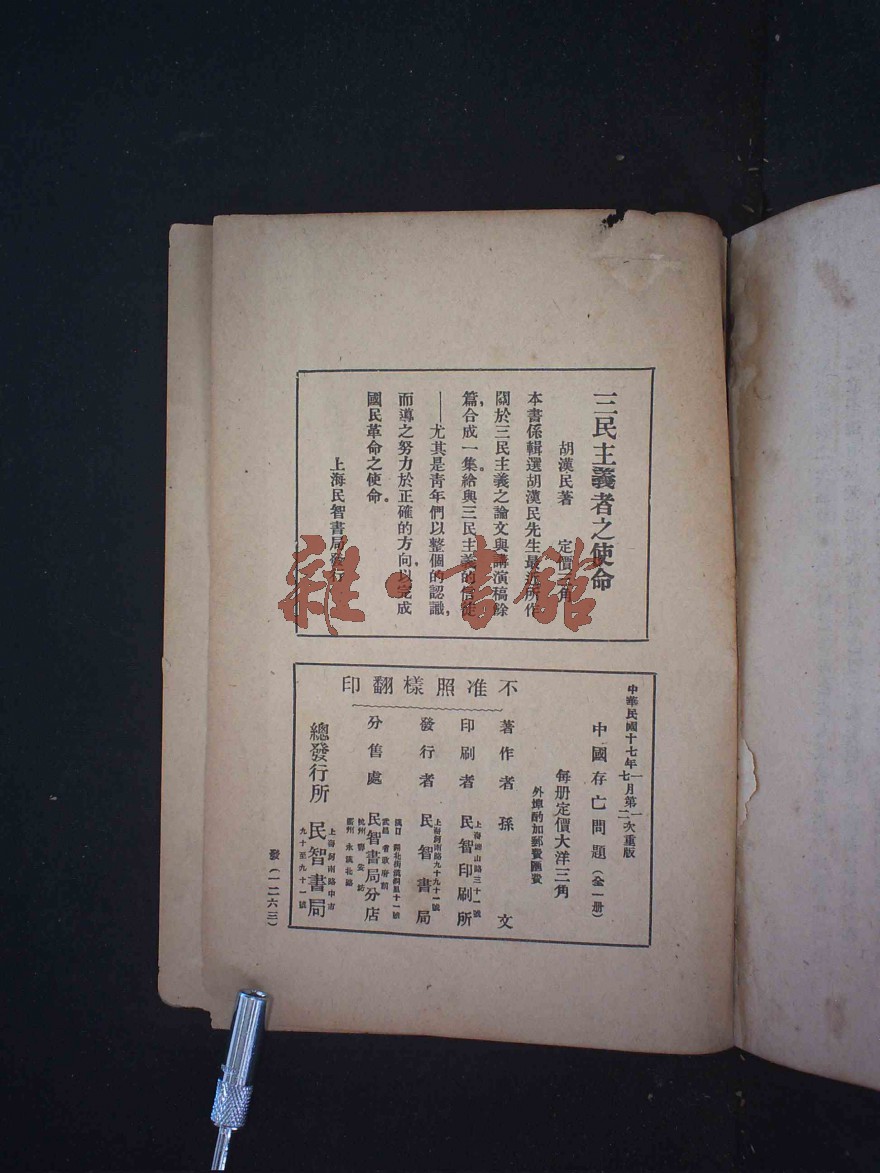 三民主義者之使命
胡漢民著 定價三角
本書係輯選胡漢民先生最近所作
關於三民主義之論文與講演稿餘
篇,合成一集。給與三民主義的信徒
——尤其是青年們以整個的認識,
而導之努力於正確的方向,以完成
國民革命之使命。
上海民智書局發行
雜·書館
中華民國十七年一月第一次重版
七月第二次重版
中國存亡問題(全一册)
每册定價大洋三角
外埠酌加郵費匯費
不准照樣翻印
著作者 孫文
印刷者 民智印刷所
發行者 上海河南路九十九十一號 民智書局
分售處 民智書局分店
總發行所 上海河南路中市九十至九十一號 民智書局
發(一二六三)